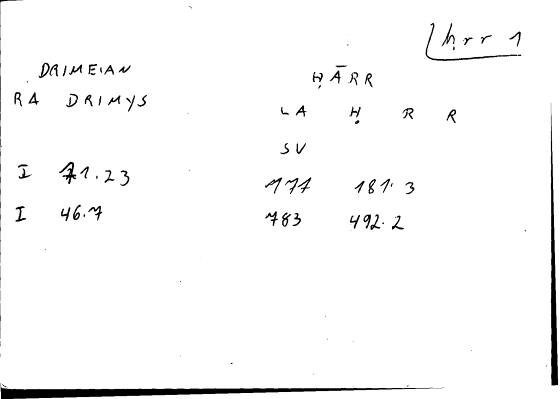 ḥrr 1
DRIMEIAN ḤĀRR
RA DRIMYS LA Ḥ R R
SV
I 71.23 177 181.3
I 46.7 783 492.2